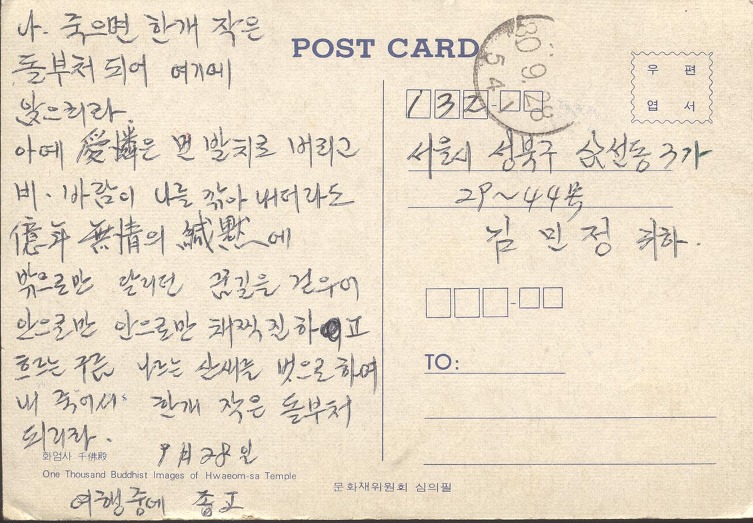 나. 죽으면 한개 작은
돌부처 되어 여기에
앉으리라.
아예 愛憐은 먼 발치로 버리고
비·바람이 나를 깎아 내더라도
億年 無情의 緘默에
밖으로만 달리던 꿈길을 걷우어
안으로만 안으로만 채찍질하고
흐르는 구름 나르는 산새를 벗으로하여
내 죽어서 한개 작은 돌부처
되리라.
9月 28일
화엄사 千佛殿
One Thousand Buddhist Images of Hwaeom-sa Temple
여행중에
POST CARD
80.9.28
우편
엽서
132-
서울시 성북구 삼선동 3가
29~44号
김 민 정 귀하.
TO:
문화재위원회 심의필